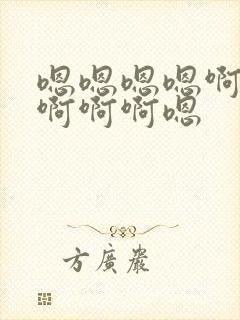 嗯嗯嗯嗯啊
啊啊啊嗯
方廣嚴